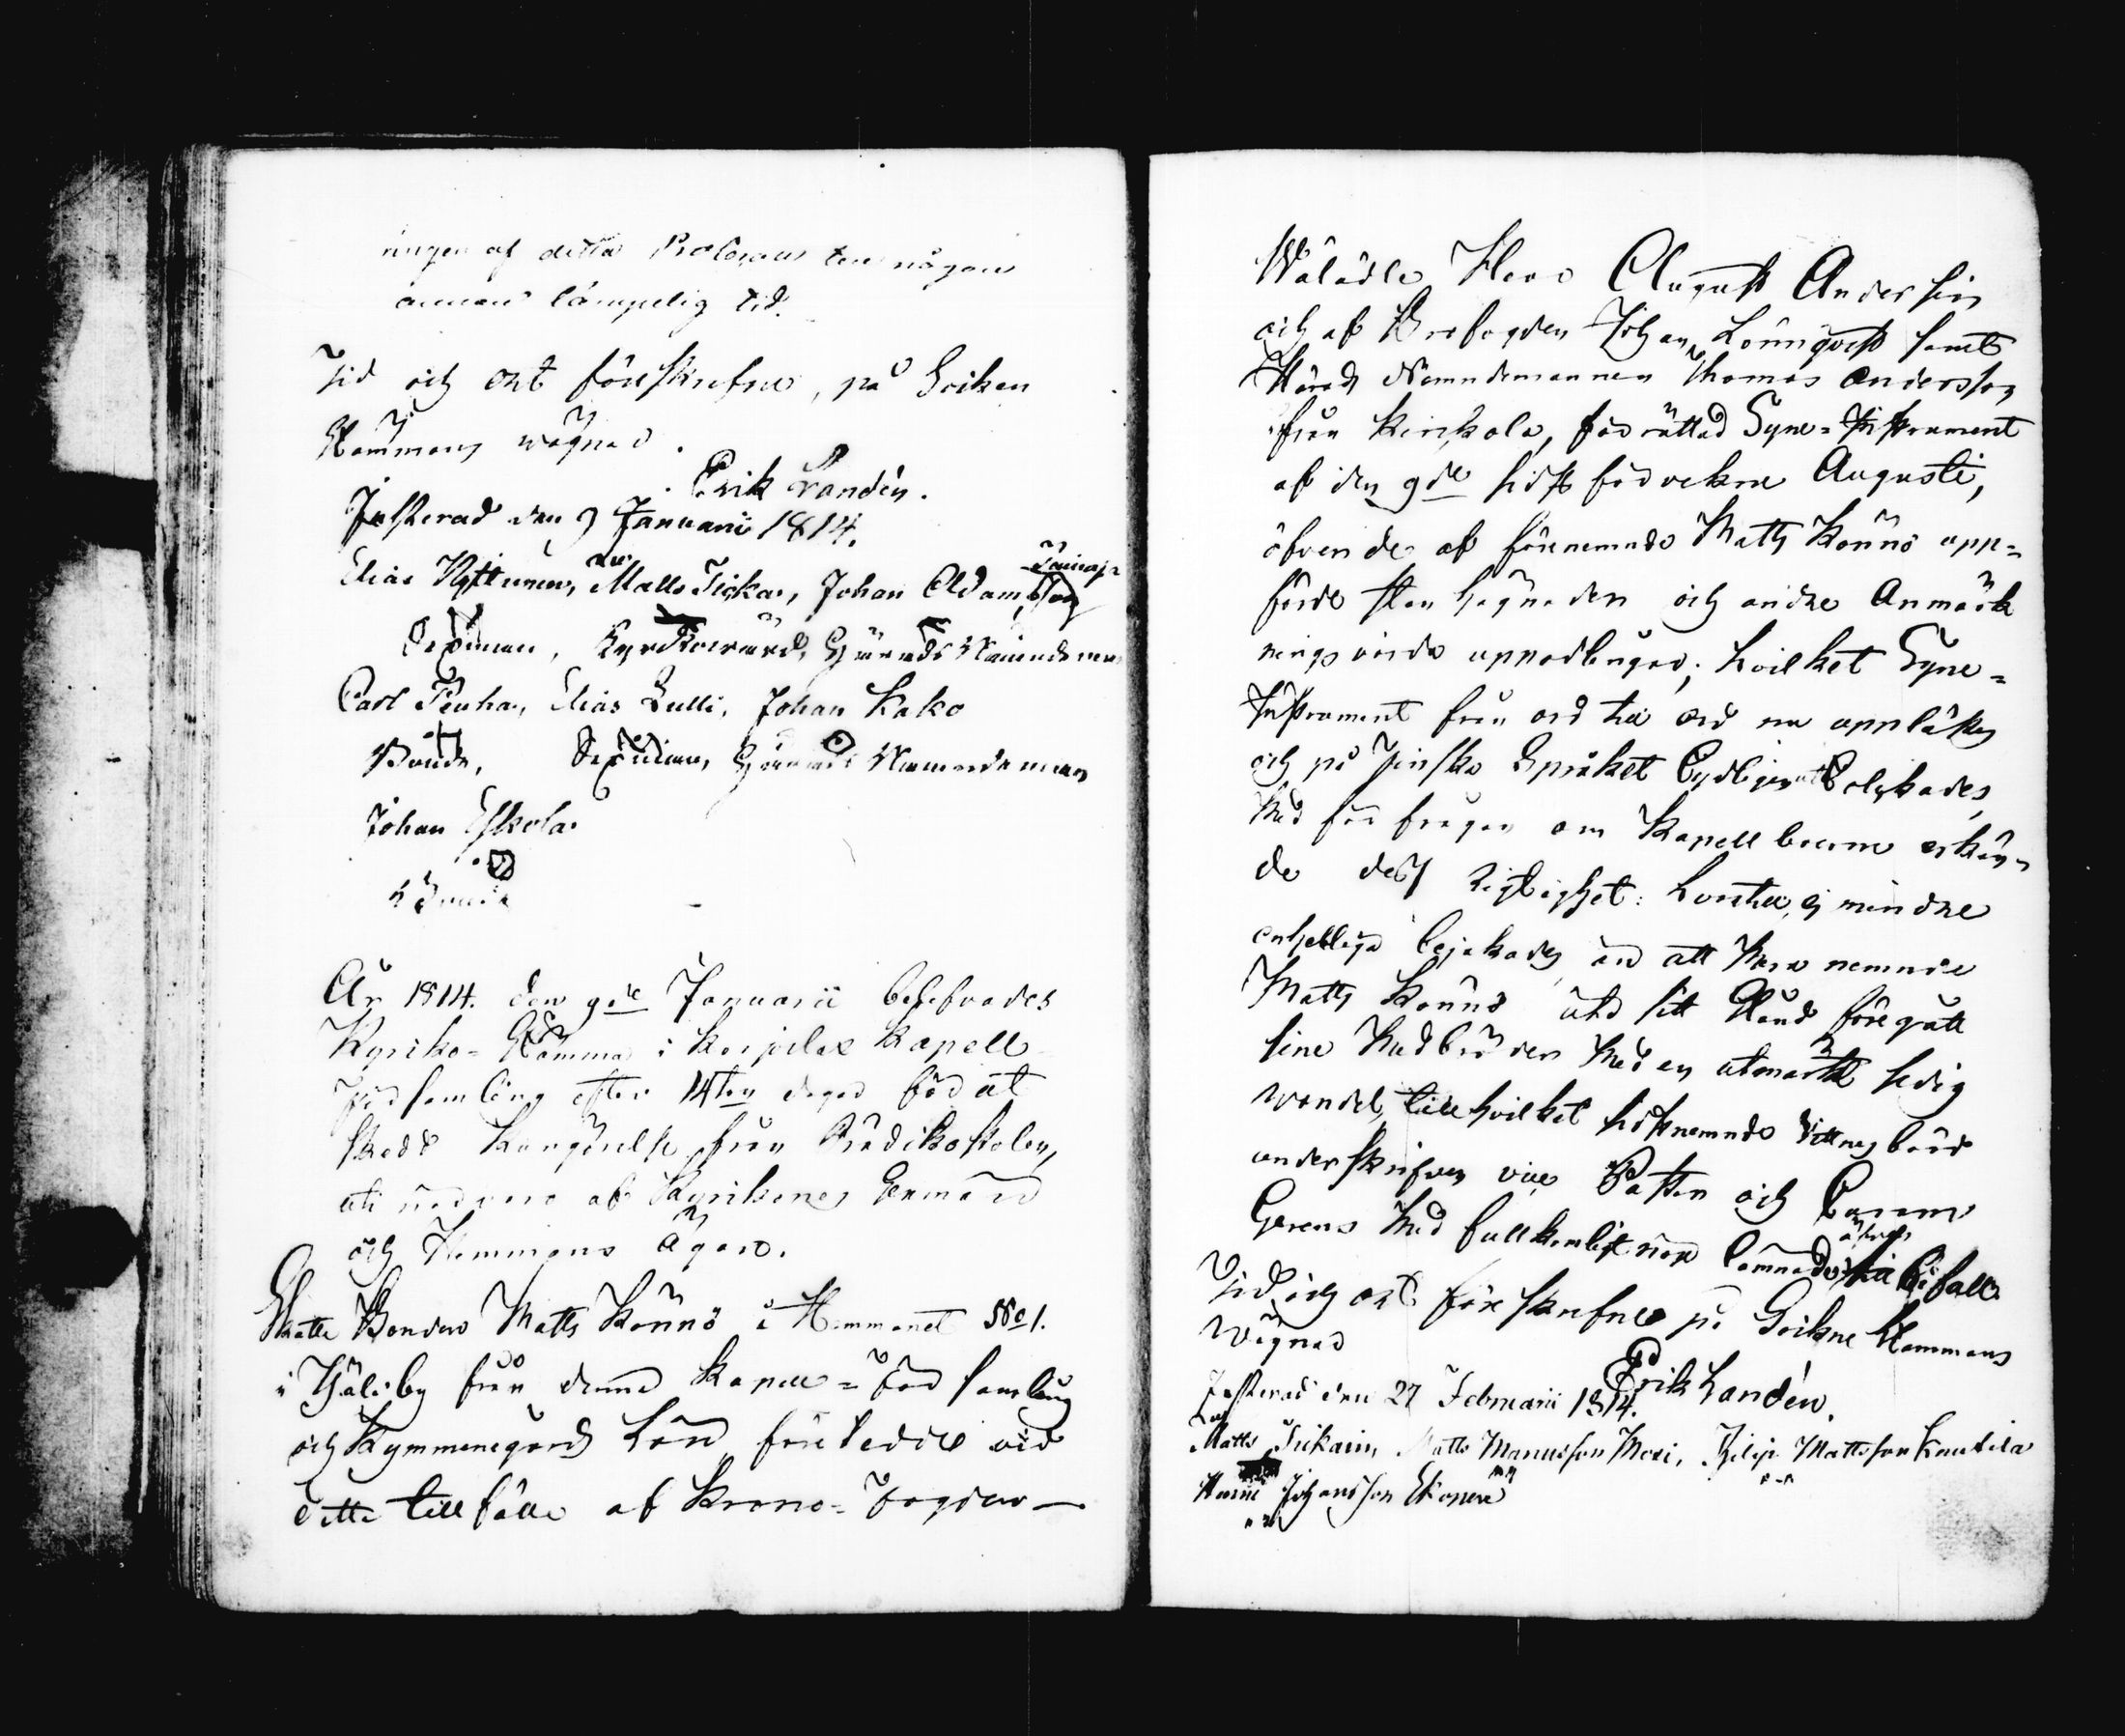 ningen af detta Protocoll till någon
annan lämpelig tid.
Tid och ort föreskrefne, på Sockne
Stämmans wägnar.
Erik Landén.
Justerad den 9 Januarii 1814.
Elias Hyttinen, Matts Tickar, Johan Adamsson
Sexman, Kyrkowärd, Härads Nämndeman
Carl Peuha, Elias Lulli, Johan Kako
Bonde, Sexman, Härads Nämndeman
Johan Eskola
Bonde
År 1814. den 9de Januarii behefvades
Kyrko-Stämma i Kapell
Församling efter 14ton dagar förut
skedd kungörelse från Prädikostolen,
uti närvaro af Kyrkones
och Hemmans Ägare.
Skatte Bonden Matts Könnö å Hemmanet No 1.
i by från denne Kapell-Församling
och Kymmenegårds Län företedde vid
detta tillfälle af Krono-Fogden
Wälädle Herr August Andersin
och af Brofogden Johan Lönnqvist samt
Härads Nämndemannen Thomas Andersson
från Kirkola, förrättad Syne-Instrument
af den 9de sidst förvekne Augusti,
öfver de af förenemnde Matts Könnö upp-
förde Sten hägnader och andre Anmärk
nings värde uppodlingar; hvilket Syne-
Instrument från ord till ord nu upplästes
och på Finska Språket tydligen uttolkades,
Med förfrågan om Kapellboerne erkän-
de dess rigtighet: hvartill, ej mindre
enhelligt bejakades, än att Mera nemnde
Matts Könnö uti sitt Stånd föregått
sine Medbröder med en utmärkt sedig
wandel, till hvilket sidstnemnde Vittnesbörd
underskrifven vice Pastor och
Med fullkomligt nöje lämnade bifall.
Tid och ort föreskrefne på Sockne Stämmans
wägnar
Erik Landén.
Justerad den 27 Februarii 1814.
Matts Tickain, Matts Manusson Mori, Filip Mattsson Knutila
Johansson